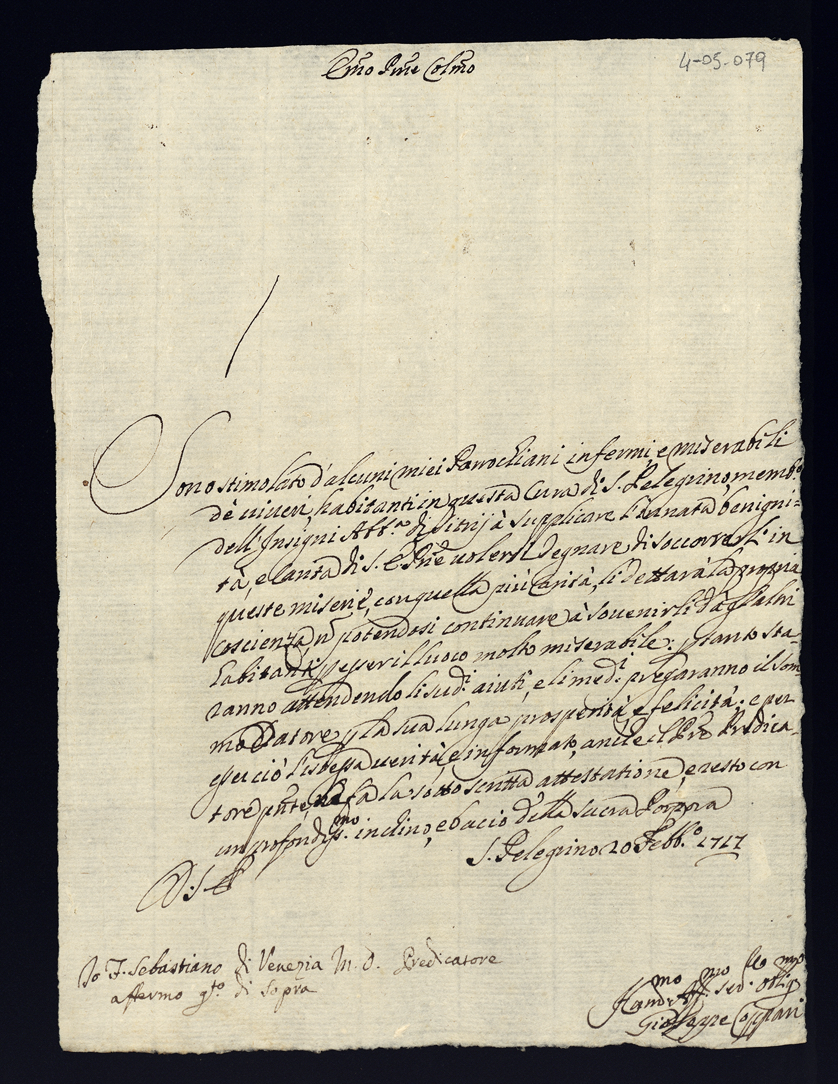 4-05-079
Emo Pne Colmo
Sono stimolato d'alcuni miei Parrochiani infermi, e miserabili
dè viveri, habitanti in questa Cura di S. Pelegrino, memb.º
dell'Insigni Abb.ª di Sitrij à supplicare l'innata benigni=
tà, e carità di S. E Pnẽ volersi degnare di soccorrerli in
queste miserie, con quella più carità, li dettarà la propria
coscienza, ñ potendosi continuare à sovenirli dà gl'altri
habitanti, p esser il luoco molto miserabile: ptanto sta-
ranno attendendo li sud.i aiuti, e li med.i pregaranno il Som-
mo Datore p la sua lunga prosperità, e felicità; e per
esser ciò l'istessa verità, e informato, anche il Prẽ Predica-
tore pñte, ne fà la sotto scritta attestatione, e resto con
un profondis.mo inclino, e bacio della sacra Porpora
S. Pelegrino 20 Febb.º 1717
D. S. E
Io F. Sebastiano di Venezia M. O. Predicatore
affermo qto. di sopra
mo mo
Giuseppe Coppari